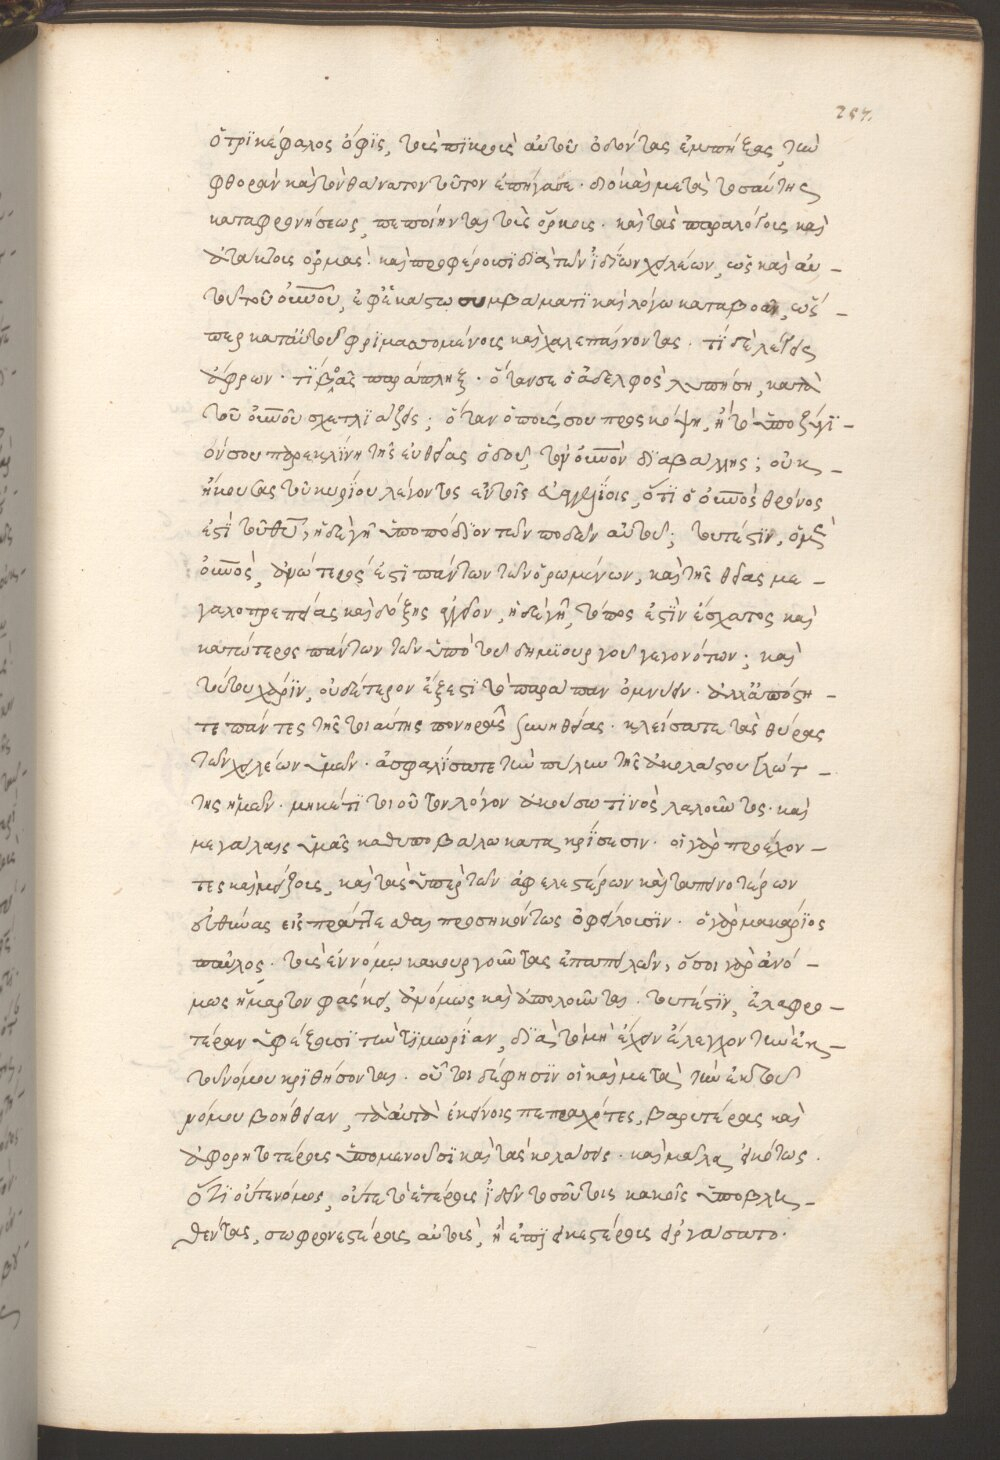 257.
ὁ τρικέφαλος ὄφις, τοὺς πικροὺς αὐτοῦ ὀδόντας ἐμπήξας, τὴν
φθορὰν καὶ τὸν θάνατον τοῦτον ἐπήγασε· διὸ καὶ μετὰ τοσαύτης
καταφρονήσεως, πεποίηνται τοὺς ὅρκους· καὶ τὰς παραλόγους καὶ
ἀτάκτους ὁρμάς· καὶ προφέρουσι διὰ τῶν ἰδίων χειλέων, ὡς καὶ αὐ-
τοῦ τοῦ οὐνοῦ, ἐφ' ἑκάστω συμβάματι καὶ λόγω καταβοᾶν, ὥσ-
περ κατ' αὐτοῦ φριμασσομένοις καὶ χαλεπαίνοντας· τί δὲ λέγεις
ἄφρων· τί βοᾶς παράπληξ· ὅταν σε ὁ ἀδελφὸς λυπήση, κατὰ
τοῦ οὐνοῦ σχετλιάζεις; ὅταν ὁ ποῦς σου προσκόψη, ἢ τὸ ὑποζύγι-
όν σου παρεκκλίνη τῆς εὐθείας ὁδοῦ, τὸν οὐνὸν διαβάλλης; οὐκ
ἤκουσας τοῦ κυρίου λέγοντος ἐν τοῖς εὐαγγελίοις, ὅτι ὁ οὐνὸς θρόνος
ἐστὶ τοῦ θεοῦ, ἡ δὲ γῆ ὑποπόδιον τῶν ποδῶν αὐτοῦ; τουτέστιν, ὁ μὲν
οὐνὸς, ἀνώτερός ἐστι πάντων τῶν ὁρωμένων, καὶ τῆς θείας με-
γαλοπρεπείας καὶ δόξης ἔνδον, ἡ δὲ γῆ, τόπος ἐστὶν ἔσχατος καὶ
κατώτερος πάντων τῶν ὑπὸ τοῦ δημιουργοῦ γεγονότων; καὶ
τούτου χάριν, οὐδέτερον ἔξεστι τὸ παράπαν ὀμνύειν· ἀλλ' ἀπόστη-
τε πάντες τῆς τοιαύτης πονηρᾶς συνηθείας· κλείσατε τὰς θύρας
τῶν χειλέων ὑμῶν· ἀσφαλίσατε τὴν πύλην τῆς ἀκολάστου γλώτ-
της ἡμῶν· μηκέτι τοιοῦτον λόγον ἀκούσω τινὸς λαλοῦντος· καὶ
μεγάλαις ὑμᾶς καθυποβάλω κατακρίσεσιν· οἱ γὰρ προέχον-
τες καὶ μείζους, καὶ τὰς ὑπὲρ τῶν ἀφελεστέρων καὶ ταπεινοτέρων
εὐθύνας εἰσπράττεσθαι προσηκόντως ὀφείλουσιν· ὁ γὰρ μακάριος
παῦλος· τοὺς ἐννόμω κακουργοῦντας ἐπαπειλῶν, ὅσοι γὰρ ἀνό-
μως ἥμαρτον φάσκει, ἀνόμως καὶ ἀπολοῦνται· τουτέστιν, ἐλαφρο-
τέραν ὑφέξουσι τὴν τιμωρίαν, διὰ τὸ μὴ ἔχειν ἔλεγχον τὴν ἐκ
τοῦ νόμου κριθήσονται· οὗτοι δέ φησιν οἱ καὶ μετὰ τὴν ἐκ τοῦ
νόμου βοήθειαν, τὰ αὐτὰ ἐκείνοις πεπραχότες, βαρυτέρας καὶ
ἀφορητοτέρας ὑπομενοῦσι καὶ τὰς κολάσεις· καὶ μάλα εἰκότως·
ὅτι οὔτε νόμος, οὔτε τὸ ἑτέρους ἰδεῖν τοσούτοις κακοῖς ὑποβλη-
θέντας, σωφρονεστέρους αὐτοὺς, ἢ ἐπιεικεστέρους εἰργάσατο·